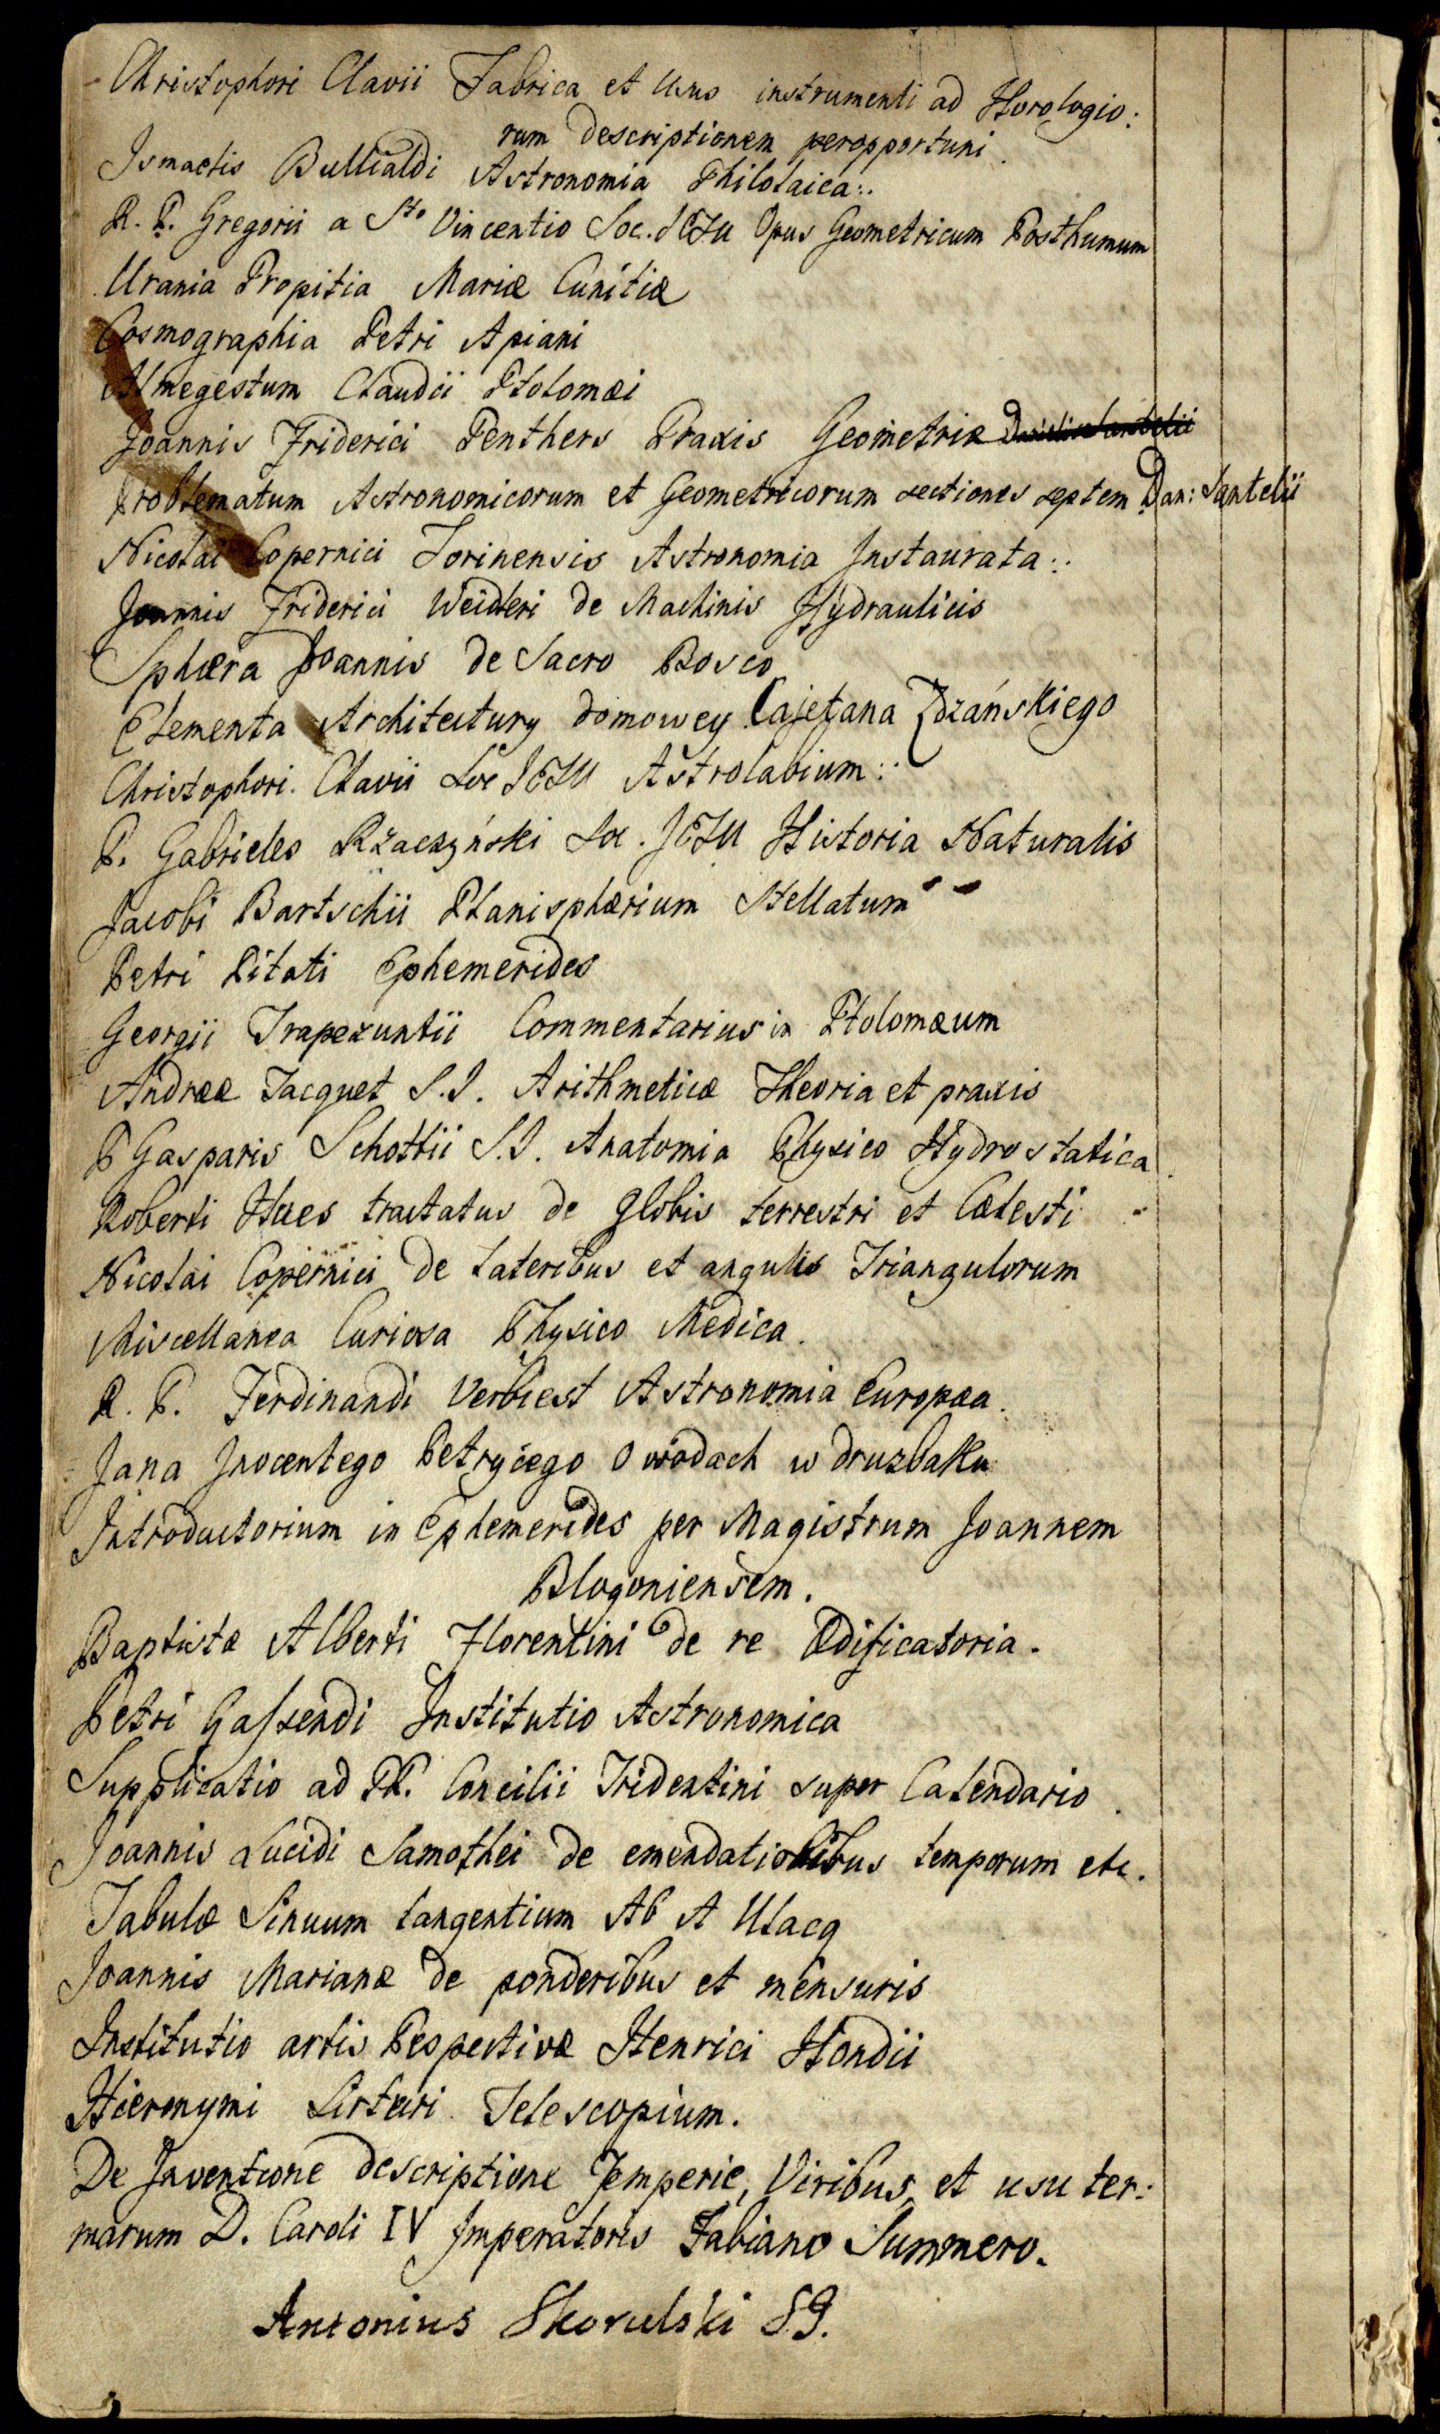 Christophori Clavii Fabrica et Usus instrumenti ad Horologio:
rum Descriptionem peropportuni.
Ismaelis Bullialdi Astronomia Philolaica:.
R. P. Gregorii a Sto Vincentio Soc. JESU Opus Geometricum Posthumum
Urania Propitia Mariæ Cunitiæ
Cosmographia Petri Apiani
Almegestum Claudii Ptolomæi
Joannis Friderici Penthers Praxis Geometriæ
Problematum Astronomicorum et Geometricorum sectiones septem Dan: Santelii
Nicolai Copernici Torinensis Astronomia Instaurata:.
Joannis Friderici Weidleri de Machinis Hydraulicis
Sphæra Joannis de Sacro Bosco
Elementa Architectury domowey Cajetana Zdzańskiego
Christophori Clavii Soc JESU Astrolabium:.
P. Gabrieles Rzaczyński Soc. JESU Historia Naturalis
Jacobi Bartschii Planisphærium Stellatum
Petri Pitati Ephemerides
Georgii Trapezuntii Commentarius in Ptolomæum
Andreæ Tacquet S.J. Arithmeticæ Theoria et praxis
P Gasparis Schottii S.J. Anatomia Physico Hydrostatica
Roberti Hues tractatus de globis terrestri et Cœlesti
Nicolai Copernici De lateribus et angulis Triangulorum
Miscellanea Curiosa Physico Medica.
R. P. Ferdinandi Verbiest Astronomia Europæa.
Jana Jnocentego Petrycego o wodach w druzbaku
Introductorium in Ephemerides per Magistrum Joannem
Blogoniensem.
Baptistæ Alberti Florentini de re Ædificatoria.
Petri Gassendi Institutio Astronomica
Supplicatio ad PP. Concilii Tridentini super Calendario.
Joannis Lucidi Samothei de emendationibus temporum etc.
Tabulæ Sinuum tangentium Ab A Ulacq
Joannis Marianæ de ponderibus et mensuris
Institutio artis Pespectivæ Henrici Hondii
Hieronymi Sirturi Telescopium.
De Inventione descriptione Temperie, Viribus, et usu ter:
marum D. Caroli IV Imperatoris Fabiano Summero.
Antonius Skorulski S.J.